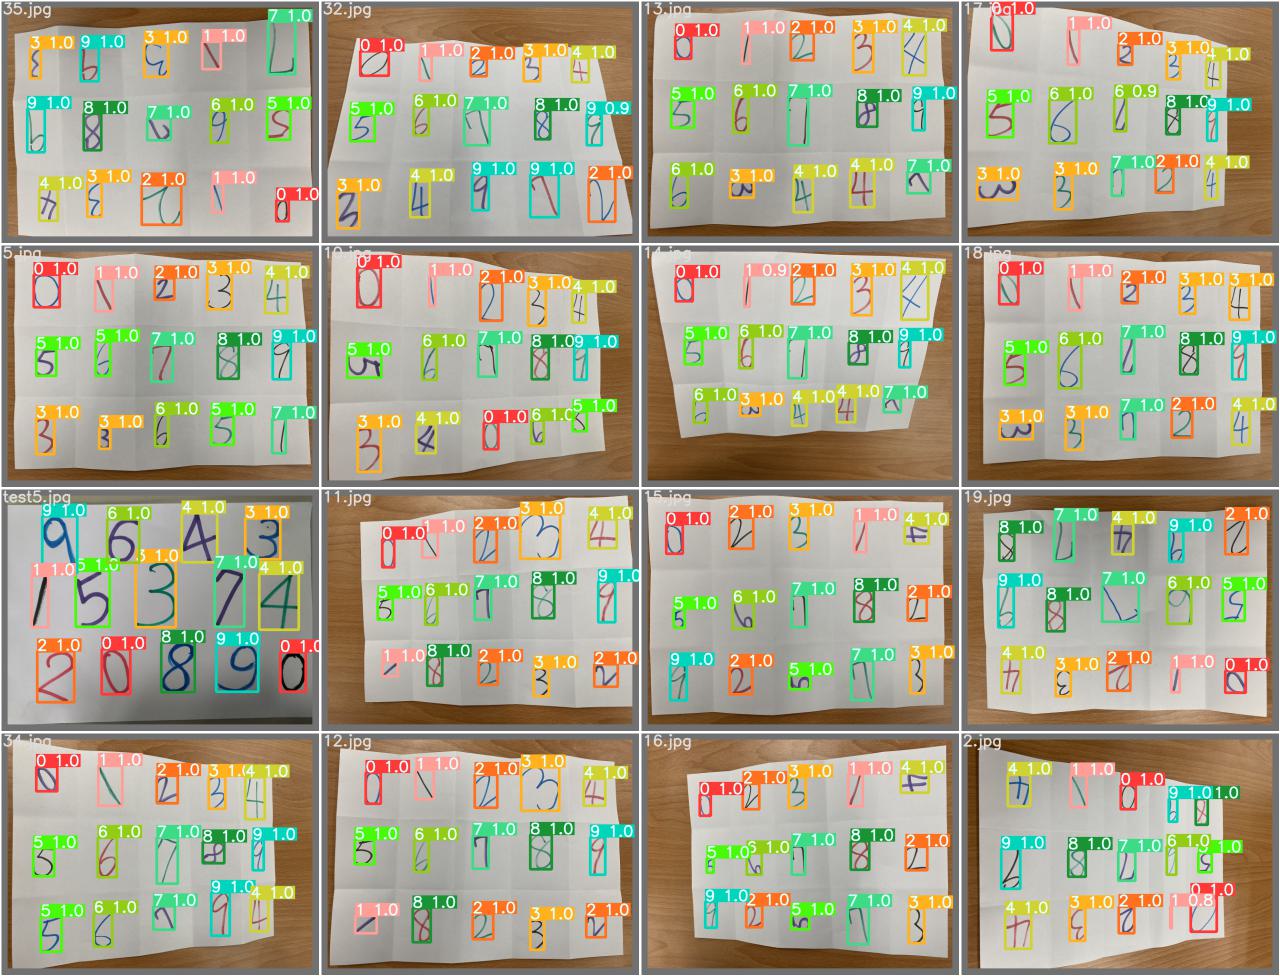 35.jpg
3 1.0 9 1.0 3 1.0 1 1.0 7 1.0
9 1.0 8 1.0 7 1.0 6 1.0 5 1.0
4 1.0 3 1.0 2 1.0 1 1.0 0 1.0
32.jpg
0 1.0 1 1.0 2 1.0 3 1.0 4 1.0
5 1.0 6 1.0 7 1.0 8 1.0 9 0.9
3 1.0 4 1.0 9 1.0 9 1.0 2 1.0
13.jpg
0 1.0 1 1.0 2 1.0 3 1.0 4 1.0
5 1.0 6 1.0 7 1.0 8 1.0 9 1.0
6 1.0 3 1.0 4 1.0 4 1.0 7 1.0
17.jpg
0 1.0 1 1.0 2 1.0 3 1.0 4 1.0
5 1.0 6 1.0 6 0.9 8 1.0 9 1.0
3 1.0 3 1.0 7 1.0 2 1.0 4 1.0
5.jpg
0 1.0 1 1.0 2 1.0 3 1.0 4 1.0
5 1.0 5 1.0 7 1.0 8 1.0 9 1.0
3 1.0 3 1.0 6 1.0 5 1.0 7 1.0
10.jpg
0 1.0 1 1.0 2 1.0 3 1.0 4 1.0
5 1.0 6 1.0 7 1.0 8 1.0 9 1.0
3 1.0 4 1.0 0 1.0 6 1.0 5 1.0
14.jpg
0 1.0 1 0.9 2 1.0 3 1.0 4 1.0
5 1.0 6 1.0 7 1.0 8 1.0 9 1.0
6 1.0 3 1.0 4 1.0 4 1.0 7 1.0
18.jpg
0 1.0 1 1.0 2 1.0 3 1.0 3 1.0
5 1.0 6 1.0 7 1.0 8 1.0 9 1.0
3 1.0 3 1.0 7 1.0 2 1.0 4 1.0
test5.jpg
9 1.0 6 1.0 4 1.0 3 1.0
1 1.0 5 1.0 3 1.0 7 1.0 4 1.0
2 1.0 0 1.0 8 1.0 9 1.0 0 1.0
11.jpg
0 1.0 1 1.0 2 1.0 3 1.0 4 1.0
5 1.0 6 1.0 7 1.0 8 1.0 9 1.0
1 1.0 8 1.0 2 1.0 3 1.0 2 1.0
15.jpg
0 1.0 2 1.0 3 1.0 1 1.0 4 1.0
5 1.0 6 1.0 7 1.0 8 1.0 2 1.0
9 1.0 2 1.0 5 1.0 7 1.0 3 1.0
19.jpg
8 1.0 7 1.0 4 1.0 9 1.0 2 1.0
9 1.0 8 1.0 7 1.0 6 1.0 5 1.0
4 1.0 3 1.0 2 1.0 1 1.0 0 1.0
34.jpg
0 1.0 1 1.0 2 1.0 3 1.0 4 1.0
5 1.0 6 1.0 7 1.0 8 1.0 9 1.0
5 1.0 6 1.0 7 1.0 9 1.0 4 1.0
12.jpg
0 1.0 1 1.0 2 1.0 3 1.0 4 1.0
5 1.0 6 1.0 7 1.0 8 1.0 9 1.0
1 1.0 8 1.0 2 1.0 3 1.0 2 1.0
16.jpg
0 1.0 2 1.0 3 1.0 1 1.0 4 1.0
5 1.0 6 1.0 7 1.0 8 1.0 2 1.0
9 1.0 2 1.0 5 1.0 7 1.0 3 1.0
2.jpg
4 1.0 1 1.0 0 1.0 9 1.0 1.0
9 1.0 8 1.0 7 1.0 6 1.0 1.0
4 1.0 3 1.0 2 1.0 1 0.8 0 1.0